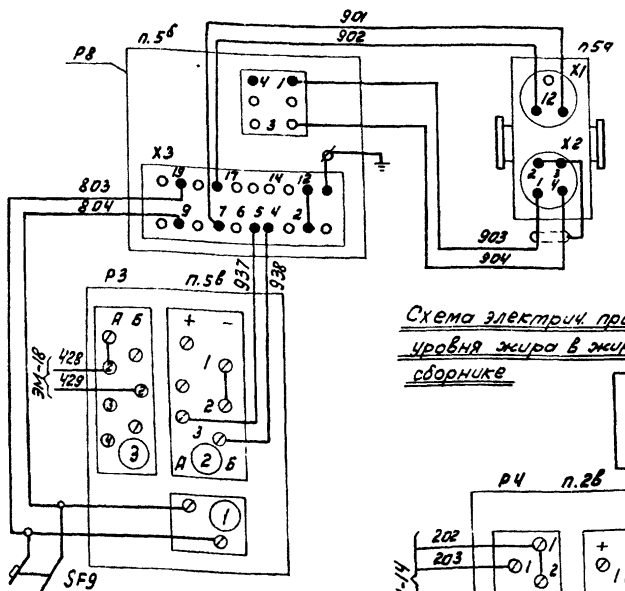 901
902
п.5б
Р8
п.5а
Х1
4 1
12
3
Х2
Х3
2 3
19 17 14 12
1 4
803
804
9 7 6 5 4 2
903
904
937
938
Р3 п.5в
А Б + -
1
ЭМ-18
428 2
429 2
2
3
3
4
3 А 2 Б
1
SF9
Схема электрич. при
уровня жира в жир
сборнике
Р4 п.2в
202
203
1
1 2
+
1
-14